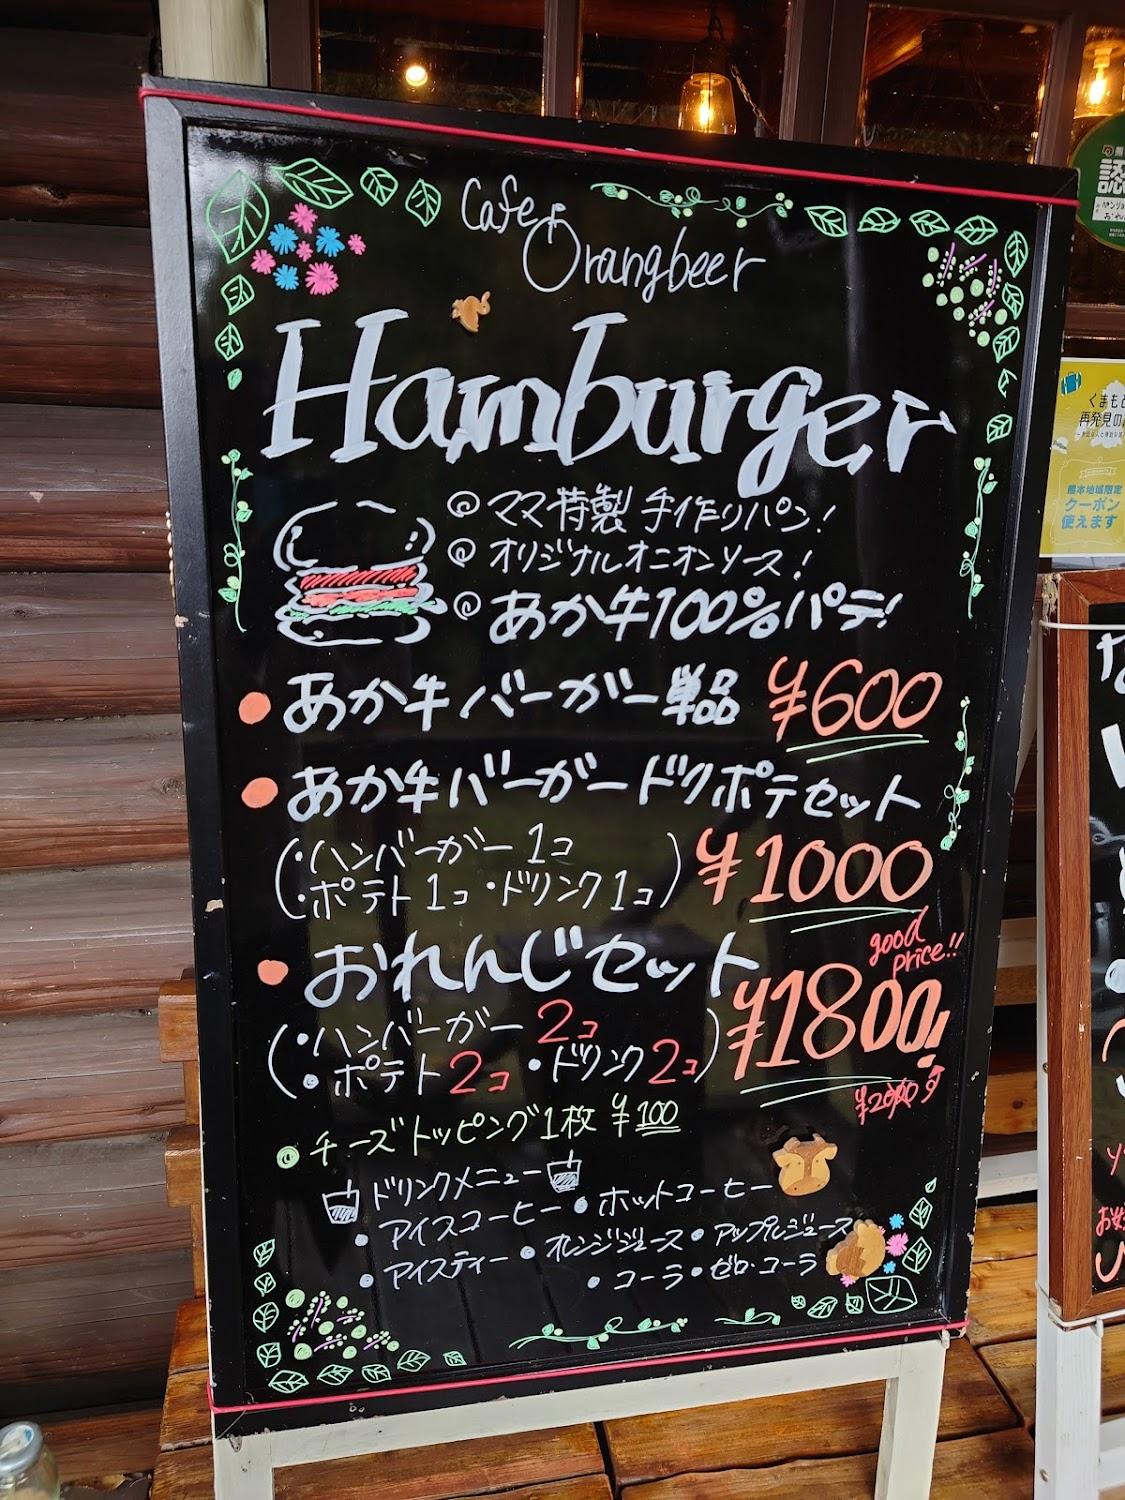 Cafe
Orangbeer
Hamburger
ママ特製 手作りパン!
オリジナルオニオンソース!
あか牛100%パテ!
● あか牛バーガー単品 ¥600
● あか牛バーガードリポテセット
(・ハンバーガー 1コ
・ポテト 1コ ・ドリンク 1コ) ¥1000
good price!!
● おれんじセット ¥1800!
(・ハンバーガー 2コ
・ポテト 2コ ・ドリンク 2コ)
¥2000
● チーズトッピング1枚 ¥100
ドリンクメニュー
● アイスコーヒー ● ホットコーヒー
● アイスティー ● オレンジジュース ● アップルジュース
● コーラ ● ゼロ・コーラ
くまもと
再発見の
熊本地域限定
クーポン
使えます
認